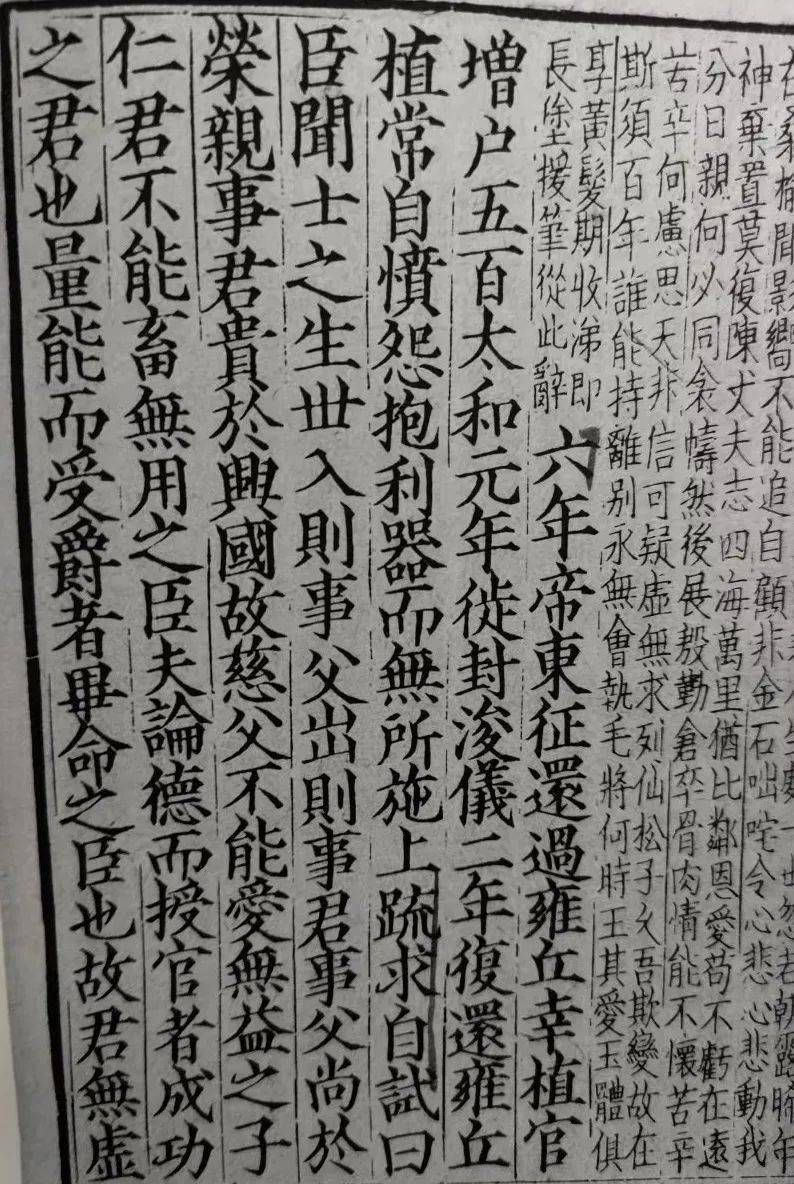 生處一世忽若朝露晞年
在桑榆間影嚮不能追自顧非金石咄咤令心悲心悲動我
神棄置莫復陳丈夫志四海萬里猶比鄰恩愛苟不虧在遠
分日親何必同衾幬然後展殷勤倉卒骨肉情能不懷苦辛
苦卒何慮思天非信可疑虛無求列仙松子久吾欺變故在
斯須百年誰能持離别永無會執毛將何時王其愛玉體俱
享黃髮期收涕即
長塗援筆從此辭
六年帝東征還過雍丘幸植官
增户五百太和元年徙封浚儀二年復還雍丘
植常自憤怨抱利器而無所施上疏求自試曰
臣聞士之生世入則事父出則事君事父尚於
榮親事君貴於興國故慈父不能愛無益之子
仁君不能畜無用之臣夫論德而授官者成功
之君也量能而受爵者畢命之臣也故君無虛